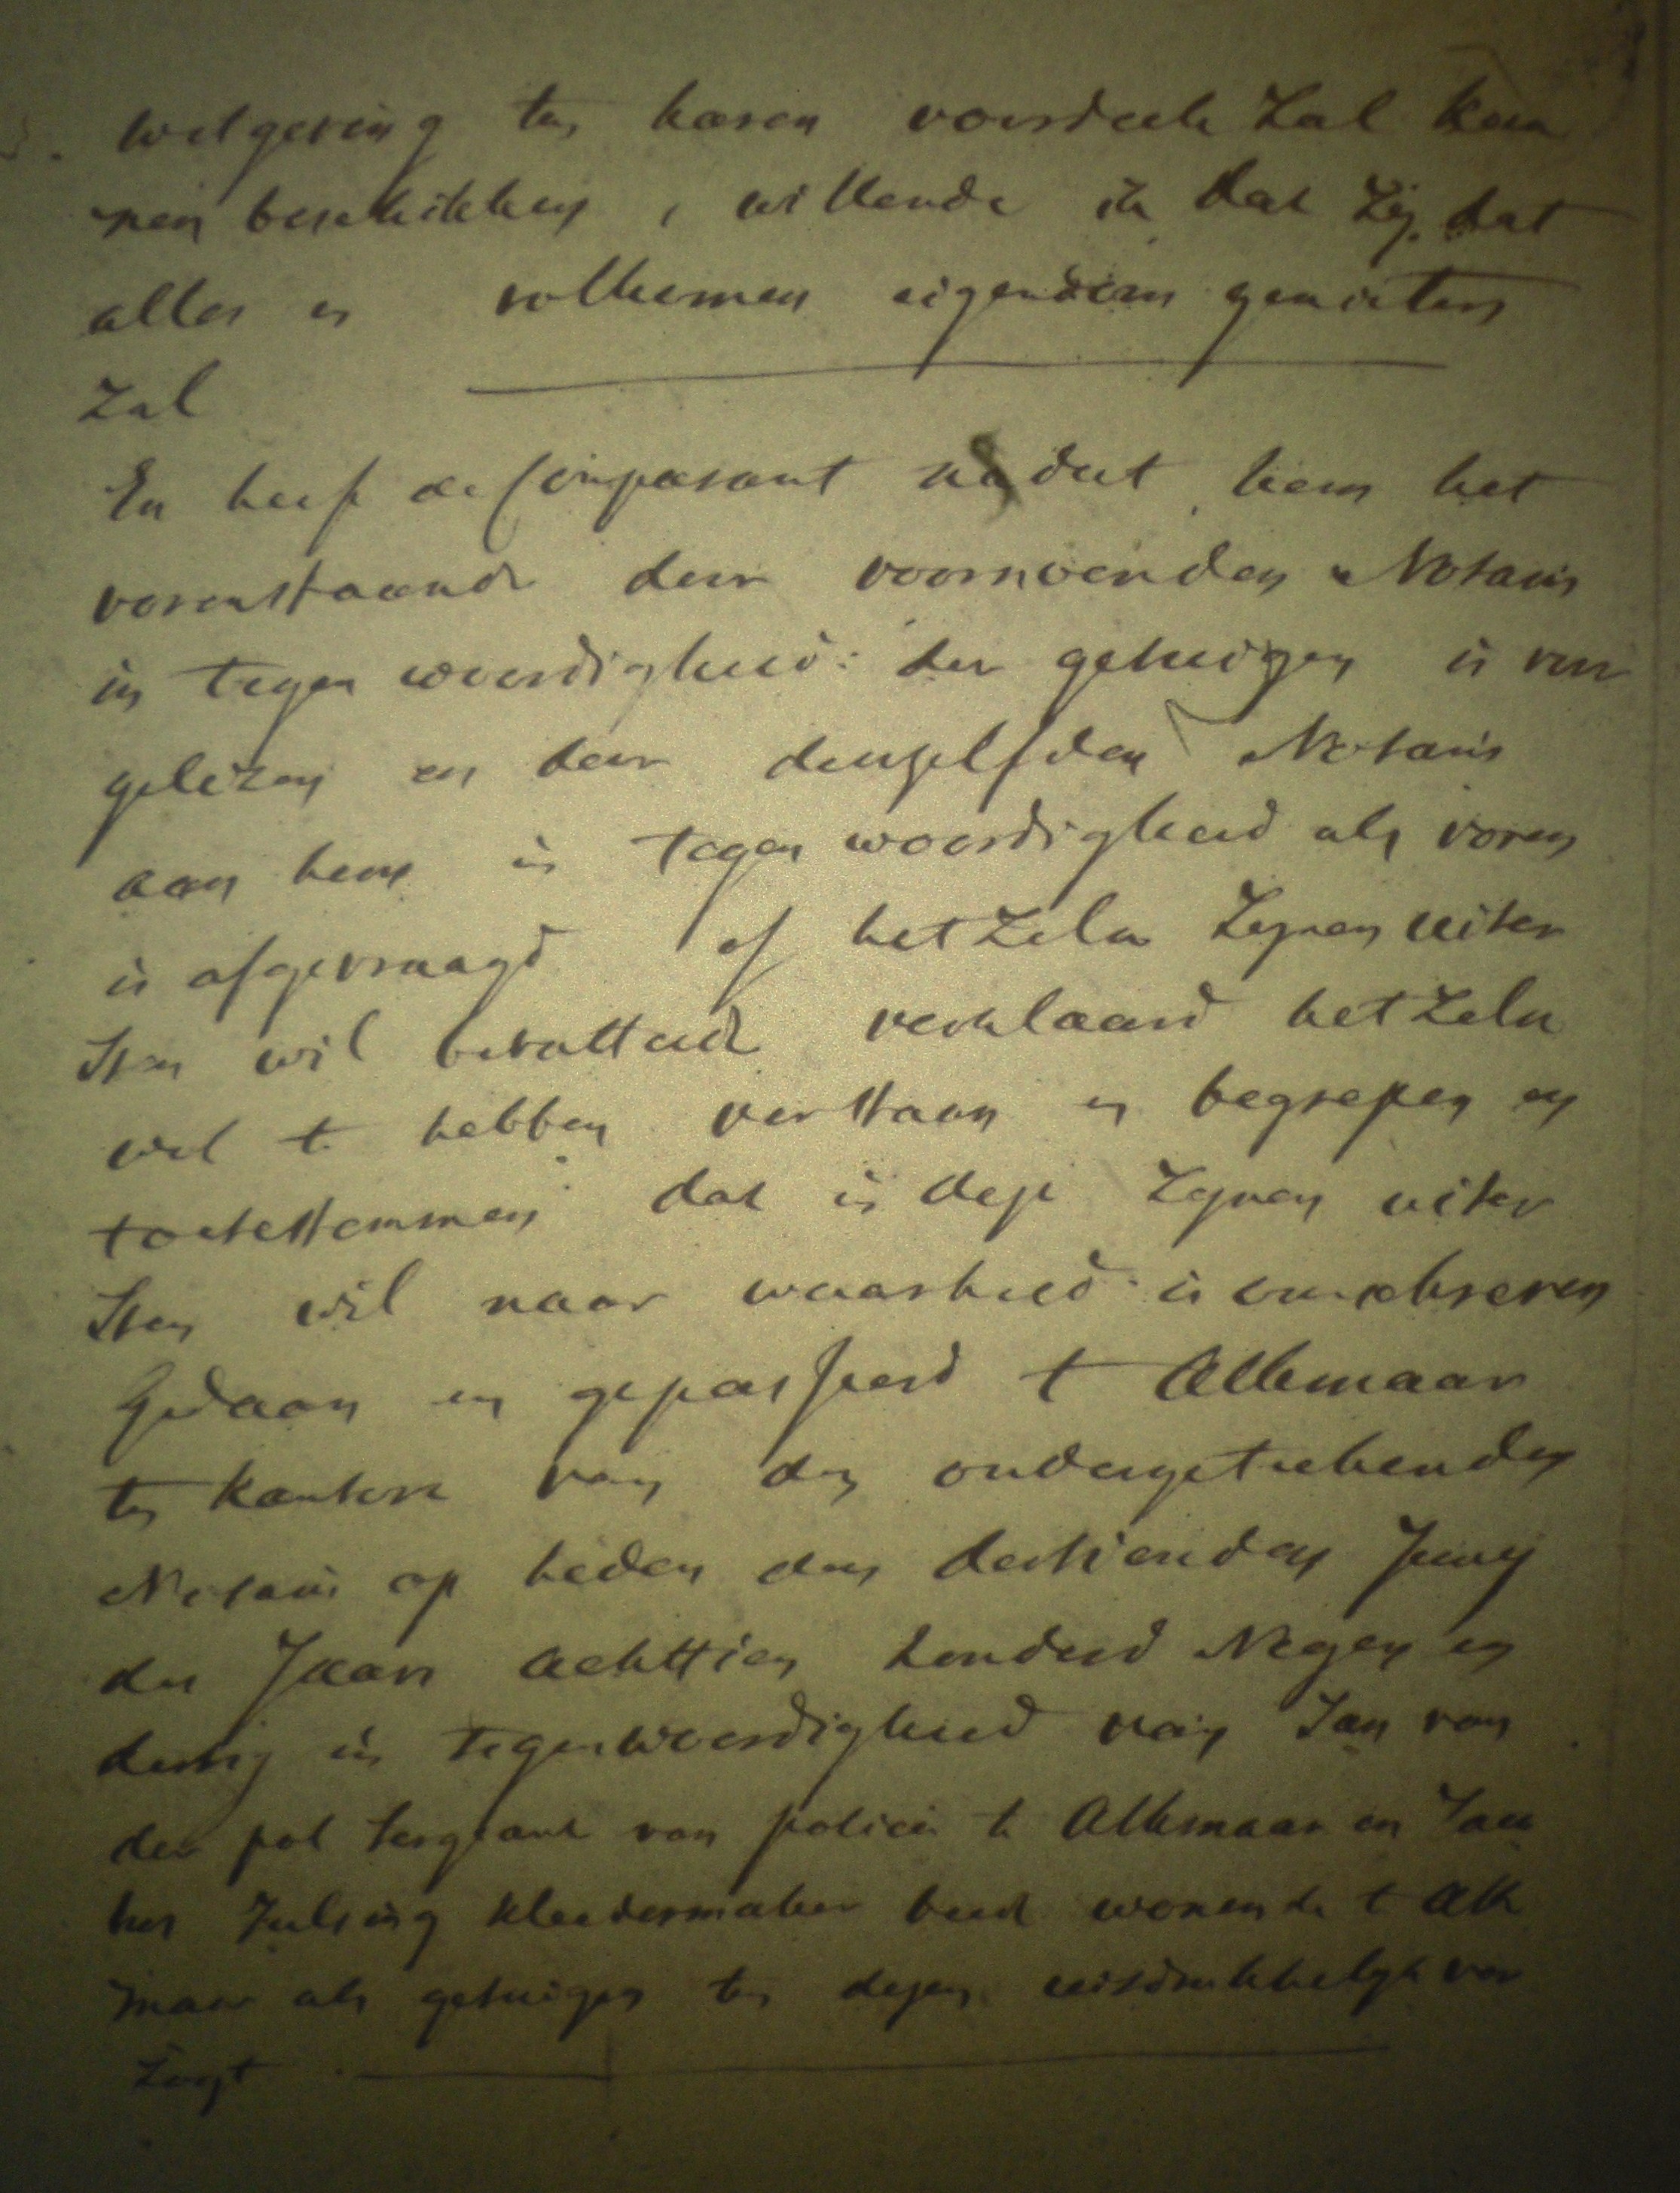 wetgeving ten haren voordeele zal kun
nen beschikken, willende ik dat zij dat
alles in volkomen eigendom genieten
zal
En heeft de Comparant nadat hem het
vorenstaande door voornoemden Notaris
in tegenwoordigheid der getuigen is voor
gelezen en door denzelfden Notaris
aan hem in tegenwoordigheid als voren
is afgevraagd of hetzelve zijnen uiter
sten wil bevatteede verklaard hetzelve
wel te hebben verstaan en begrepen en
toetestemmen dat in deze zijnen uiter
sten wil naar waarheid is omschreven
Gedaan en gepasseerd te Alkmaar
ten kantore van den ondergeteekenden
Notaris op heden den dertienden Juny
des Jaars achttien honderd Negen en
dertig in tegenwoordigheid van Jan van
der pol sergeant van policie te Alkmaar en Jaco
bus Julsing kleedermaker beide wonende te Alk
maar als getuigen ten dezen uitdrukkelijk ver
zogt